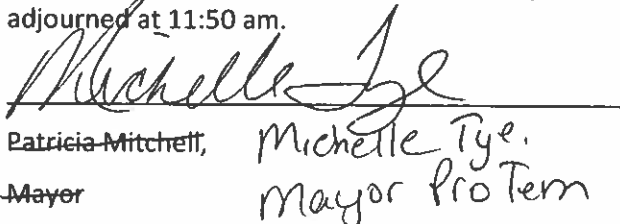 adjourned at 11:50 am.
Michelle Tye
Patricia Mitchell, Michelle Tye.
Mayor Mayor Pro Tem